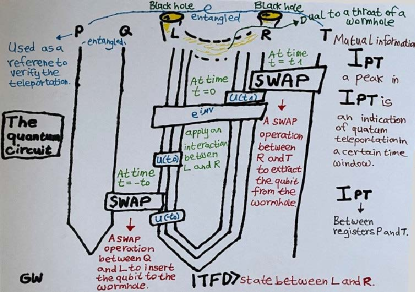 Black hole
e
Black hole
entangled
Dual to a throat of a
wormhole
P
entangled
Q
L
R
T
Used as a
reference to
verify the
teleportation.
The
quantum
Circuit
At time
t=0
At time
t=t1
SWAP
U(t1)
e^igV
apply an
interaction
between
L and R
U(t0)
At time
t=-t0
SWAP
U(t0)
A SWAP
operation
between
R and T
to extract
the qubit
from the
wormhole.
A SWAP
operation
between Q
and L to insert
the qubit to the
wormhole.
Mutual information
IPT
a peak in
IPT is
an indication
of quatum
teleportation in
a certain time
window.
IPT
Between
registers P and T.
GW
ITFD> state between L and R.